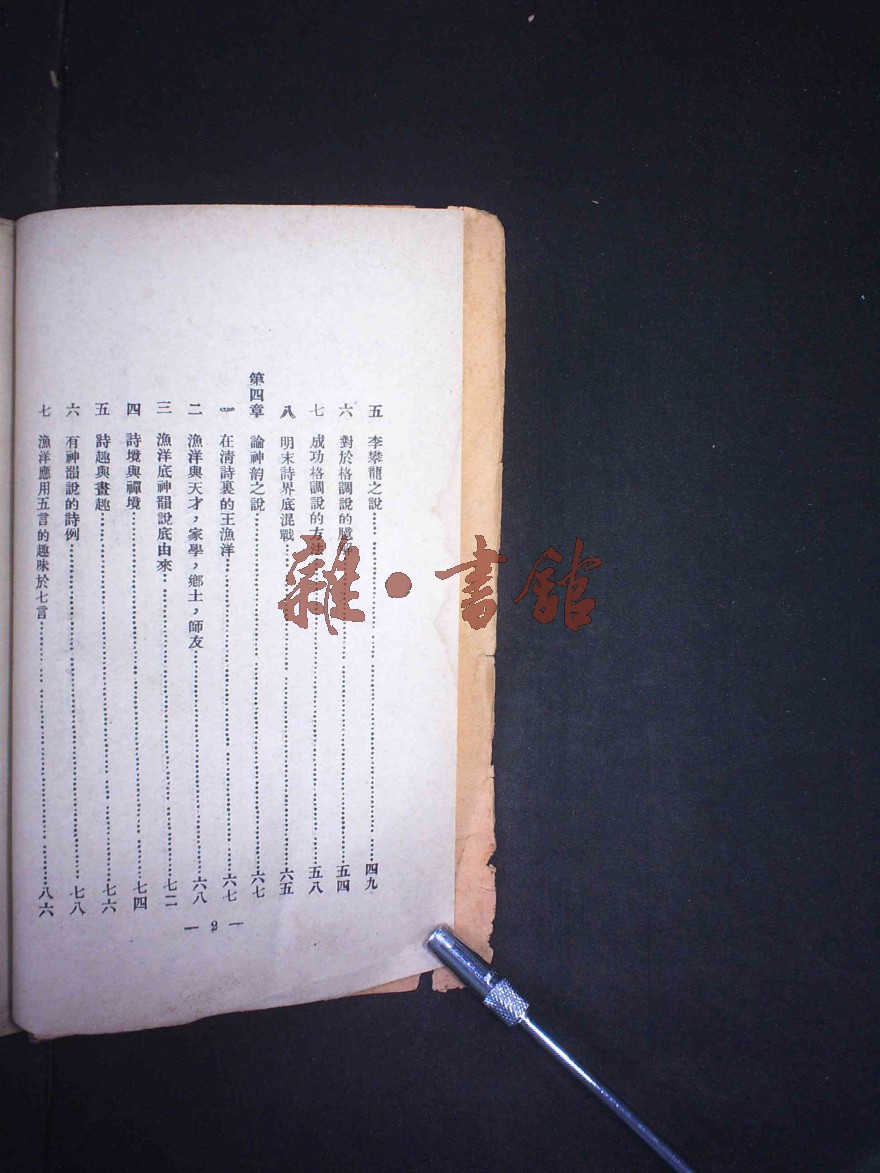 五 李攀龍之說……四九
六 對於格調說的臆解……五四
七 成功格調說的方法……五八
八 明末詩界底混戰……六五
第四章 論神韵之說……六七
一 在清詩裏的王漁洋……六七
二 漁洋與天才，家學，鄉土，師友……六八
三 漁洋底神韻說底由來……七二
四 詩境與禪境……七四
五 詩趣與畫趣……七六
六 有神韻說的詩例……七八
七 漁洋應用五言的趣味於七言……八六
— 2 —
雜·書館